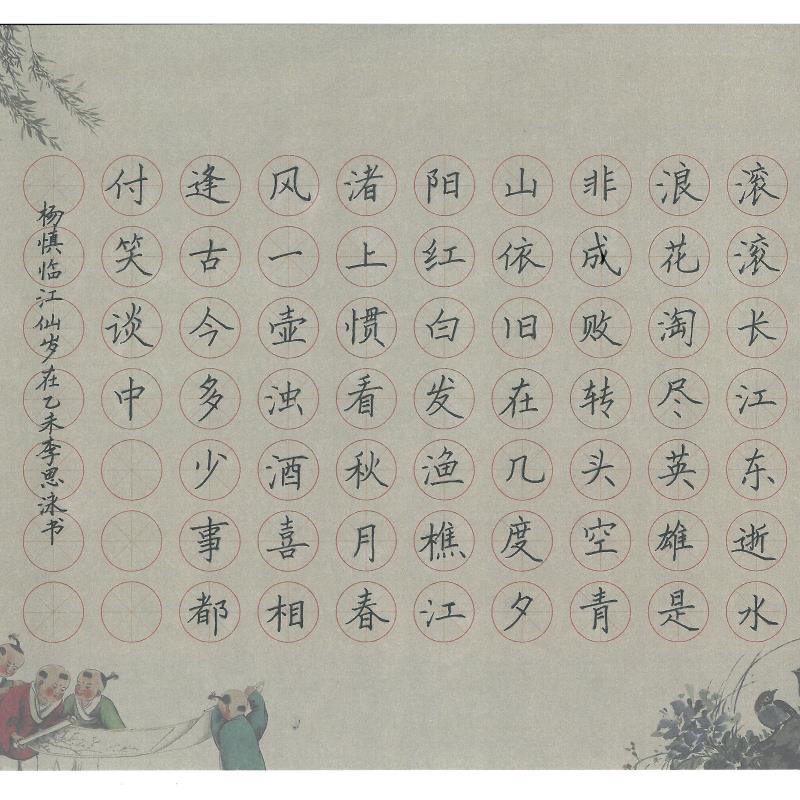 滚滚长江东逝水
浪花淘尽英雄是
非成败转头空青
山依旧在几度夕
阳红白发渔樵江
渚上惯看秋月春
风一壶浊酒喜相
逢古今多少事都
付笑谈中
杨慎临江仙岁在乙未李思泳书